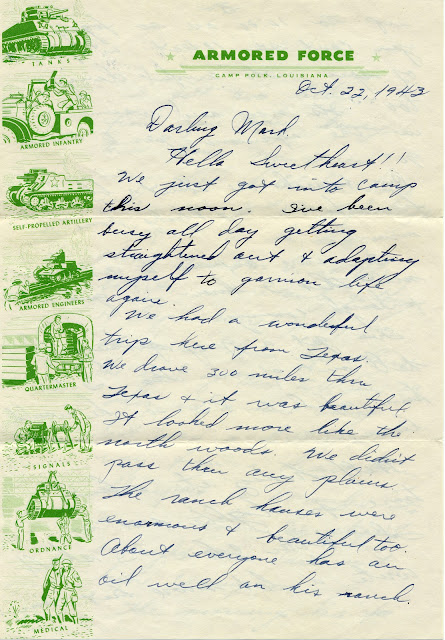 ARMORED FORCE
CAMP POLK, LOUISIANA
Oct. 22, 1943
Darling Mark,
Hello Sweetheart!!
We just got into camp
this noon. I've been
busy all day getting
straightened out & adapting
myself to garrison life
again.
We had a wonderful
trip here from Texas.
We drove 300 miles thru
Texas & it was beautiful.
It looked more like the
north woods. We didn't
pass thru any plains.
The ranch houses were
enormous & beautiful too.
About everyone has an
oil well on his ranch.
TANKS
ARMORED INFANTRY
SELF-PROPELLED ARTILLERY
ARMORED ENGINEERS
QUARTERMASTER
SIGNALS
ORDNANCE
MEDICAL